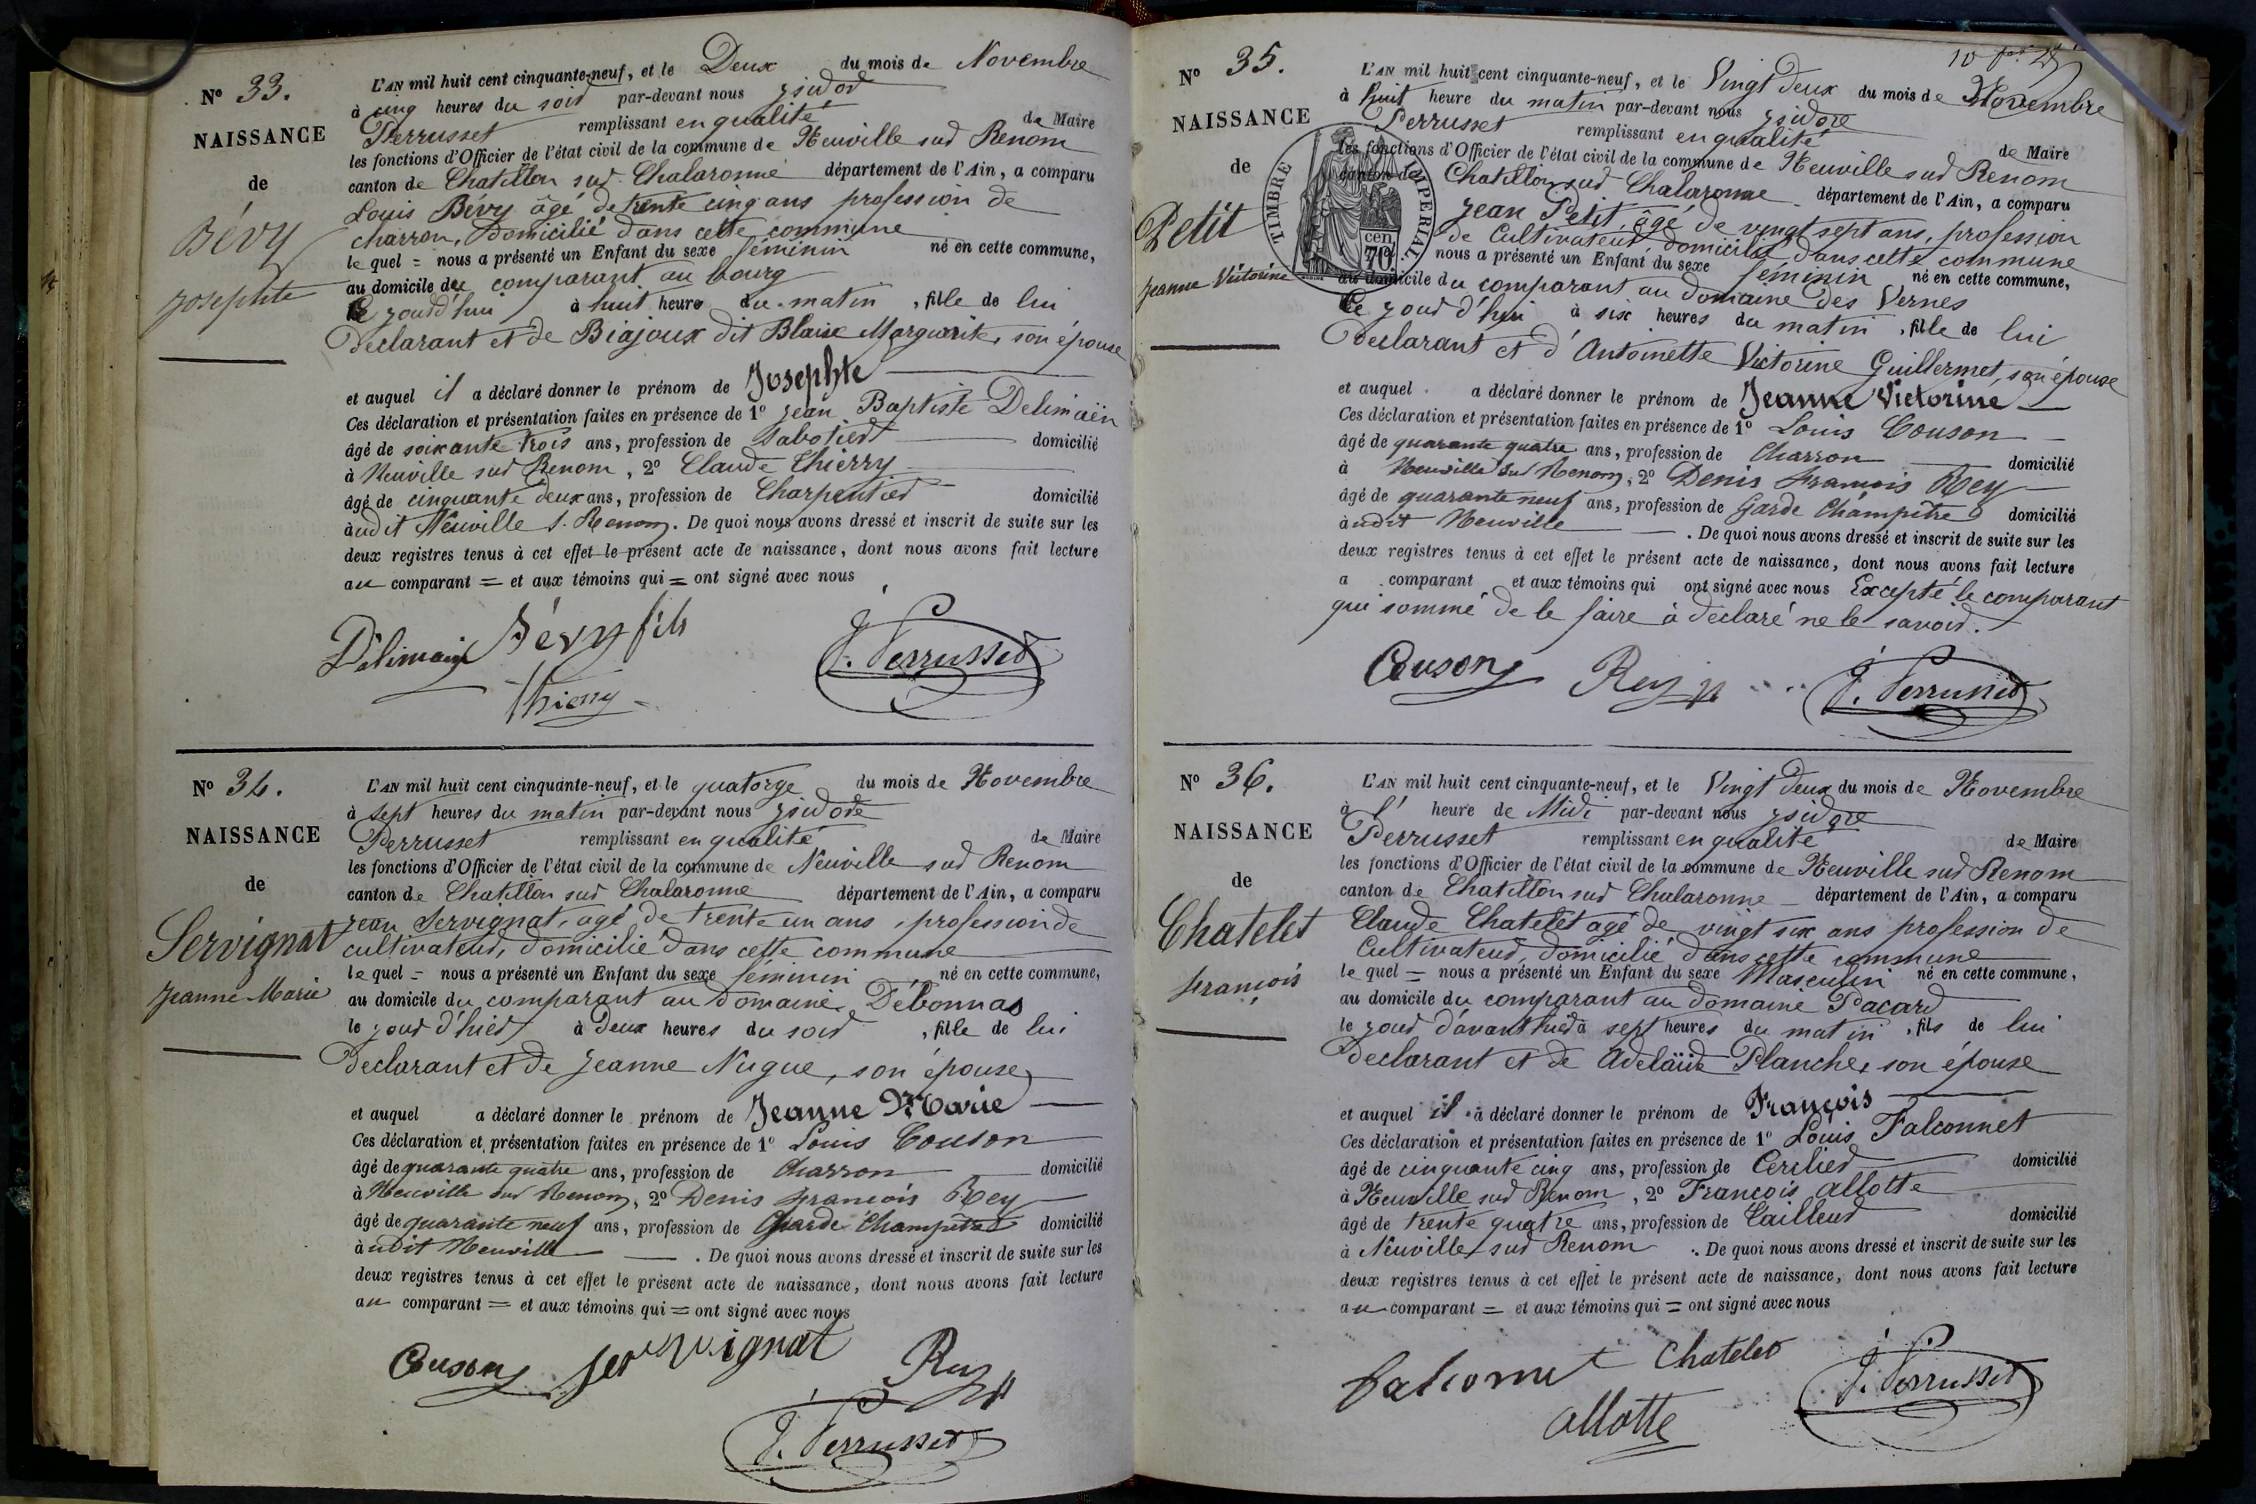 N° 33.
NAISSANCE
de
Bévy
Josephte
L'AN mil huit cent cinquante-neuf, et le Deux du mois de Novembre
à cinq heures du soir par-devant nous ysidor
Perrusset remplissant en qualité de Maire
les fonctions d'Officier de l'état civil de la commune de Neuville sur Renom
canton de Chatillon sur Chalaronne département de l'Ain, a comparu
Louis Bévy âgé de trente cinq ans profession de
charron, domicilié dans cette commune
le quel = nous a présenté un Enfant du sexe féminin né en cette commune,
au domicile du comparant au bourg
Ce jourd'hui à huit heure du matin, fille de lui
Declarant et de Biajoux dit Blaise Marguerite, son épouse
et auquel il a déclaré donner le prénom de Josephte
Ces déclaration et présentation faites en présence de 1° Jean Baptiste Delimain
âgé de soixante trois ans, profession de Sabotier domicilié
à Neuville sur Renom, 2° Claude Thierry
âgé de cinquante deux ans, profession de Charpentier domicilié
àudit Neuville s. Renom. De quoi nous avons dressé et inscrit de suite sur les
deux registres tenus à cet effet le présent acte de naissance, dont nous avons fait lecture
au comparant = et aux témoins qui = ont signé avec nous
Delimain Bévy fils
Thierry
J. Perrusset
N° 34.
NAISSANCE
de
Servignat
Jeanne Marie
L'AN mil huit cent cinquante-neuf, et le quatorze du mois de Novembre
à sept heures du matin par-devant nous ysidore
Perrusset remplissant en qualité de Maire
les fonctions d'Officier de l'état civil de la commune de Neuville sur Renom
canton de Chatillon sur Chalaronne département de l'Ain, a comparu
Jean Servignat âgé de trente un ans, profession de
cultivateur, domicilié dans cette commune
le quel = nous a présenté un Enfant du sexe féminin né en cette commune,
au domicile du comparant au domaine Débonnas
le jour d'hier à Deux heures du soir, fille de lui
Declarant et de Jeanne Nugue, son épouse
et auquel a déclaré donner le prénom de Jeanne Marie
Ces déclaration et présentation faites en présence de 1° Louis Couson
âgé de quarante quatre ans, profession de Charron domicilié
à Neuville sur Renom, 2° Denis françois Rey
âgé de quarante neuf ans, profession de Garde Champêtre domicilié
àudit Neuville. De quoi nous avons dressé et inscrit de suite sur les
deux registres tenus à cet effet le présent acte de naissance, dont nous avons fait lecture
au comparant = et aux témoins qui = ont signé avec nous
Couson Servignat Rey
J. Perrusset
N° 35.
NAISSANCE
de
Petit
Jeanne Victorine
TIMBRE IMPERIAL
70 cen
L'AN mil huit cent cinquante-neuf, et le Vingt deux du mois de Novembre
à huit heure du matin par-devant nous ysidore
Perrusset remplissant en qualité de Maire
les fonctions d'Officier de l'état civil de la commune de Neuville sur Renom
canton de Chatillon sur Chalaronne département de l'Ain, a comparu
Jean Petit âgé de vingt sept ans, profession
de Cultivateur domicilié dans cette commune
nous a présenté un Enfant du sexe féminin né en cette commune,
au domicile du comparant au domaine des Vernes
Ce jour d'hui à six heures du matin, fille de lui
Declarant et d'Antoinette Victorine Guillermet, son épouse
et auquel a déclaré donner le prénom de Jeanne Victorine
Ces déclaration et présentation faites en présence de 1° Louis Couson
âgé de quarante quatre ans, profession de Charron domicilié
à Neuville sur Renom, 2° Denis françois Rey
âgé de quarante neuf ans, profession de Garde Champêtre domicilié
àudit Neuville. De quoi nous avons dressé et inscrit de suite sur les
deux registres tenus à cet effet le présent acte de naissance, dont nous avons fait lecture
a comparant et aux témoins qui ont signé avec nous Excepté le comparant
qui sommé de le faire à déclaré ne le savoir.
Couson Rey
J. Perrusset
N° 36.
NAISSANCE
de
Chatelet
françois
L'AN mil huit cent cinquante-neuf, et le Vingt deux du mois de Novembre
à l' heure de Midi par-devant nous ysidore
Perrusset remplissant en qualité de Maire
les fonctions d'Officier de l'état civil de la commune de Neuville sur Renom
canton de Chatillon sur Chalaronne département de l'Ain, a comparu
Claude Chatelet agé de vingt six ans profession de
Cultivateur, domicilié dans cette commune
le quel = nous a présenté un Enfant du sexe Masculin né en cette commune,
au domicile du comparant au domaine Pacard
le jour d'avant hier à sept heures du matin, fils de lui
Declarant et de Adelaïde Planche, son épouse
et auquel il a déclaré donner le prénom de François
Ces déclaration et présentation faites en présence de 1° Louis Falconnet
âgé de cinquante cinq ans, profession de Cerclier domicilié
à Neuville sur Renom, 2° François allotte
âgé de trente quatre ans, profession de Tailleur domicilié
à Neuville sur Renom. De quoi nous avons dressé et inscrit de suite sur les
deux registres tenus à cet effet le présent acte de naissance, dont nous avons fait lecture
au comparant = et aux témoins qui = ont signé avec nous
falconnet Chatelet
allotte
J. Perrusset